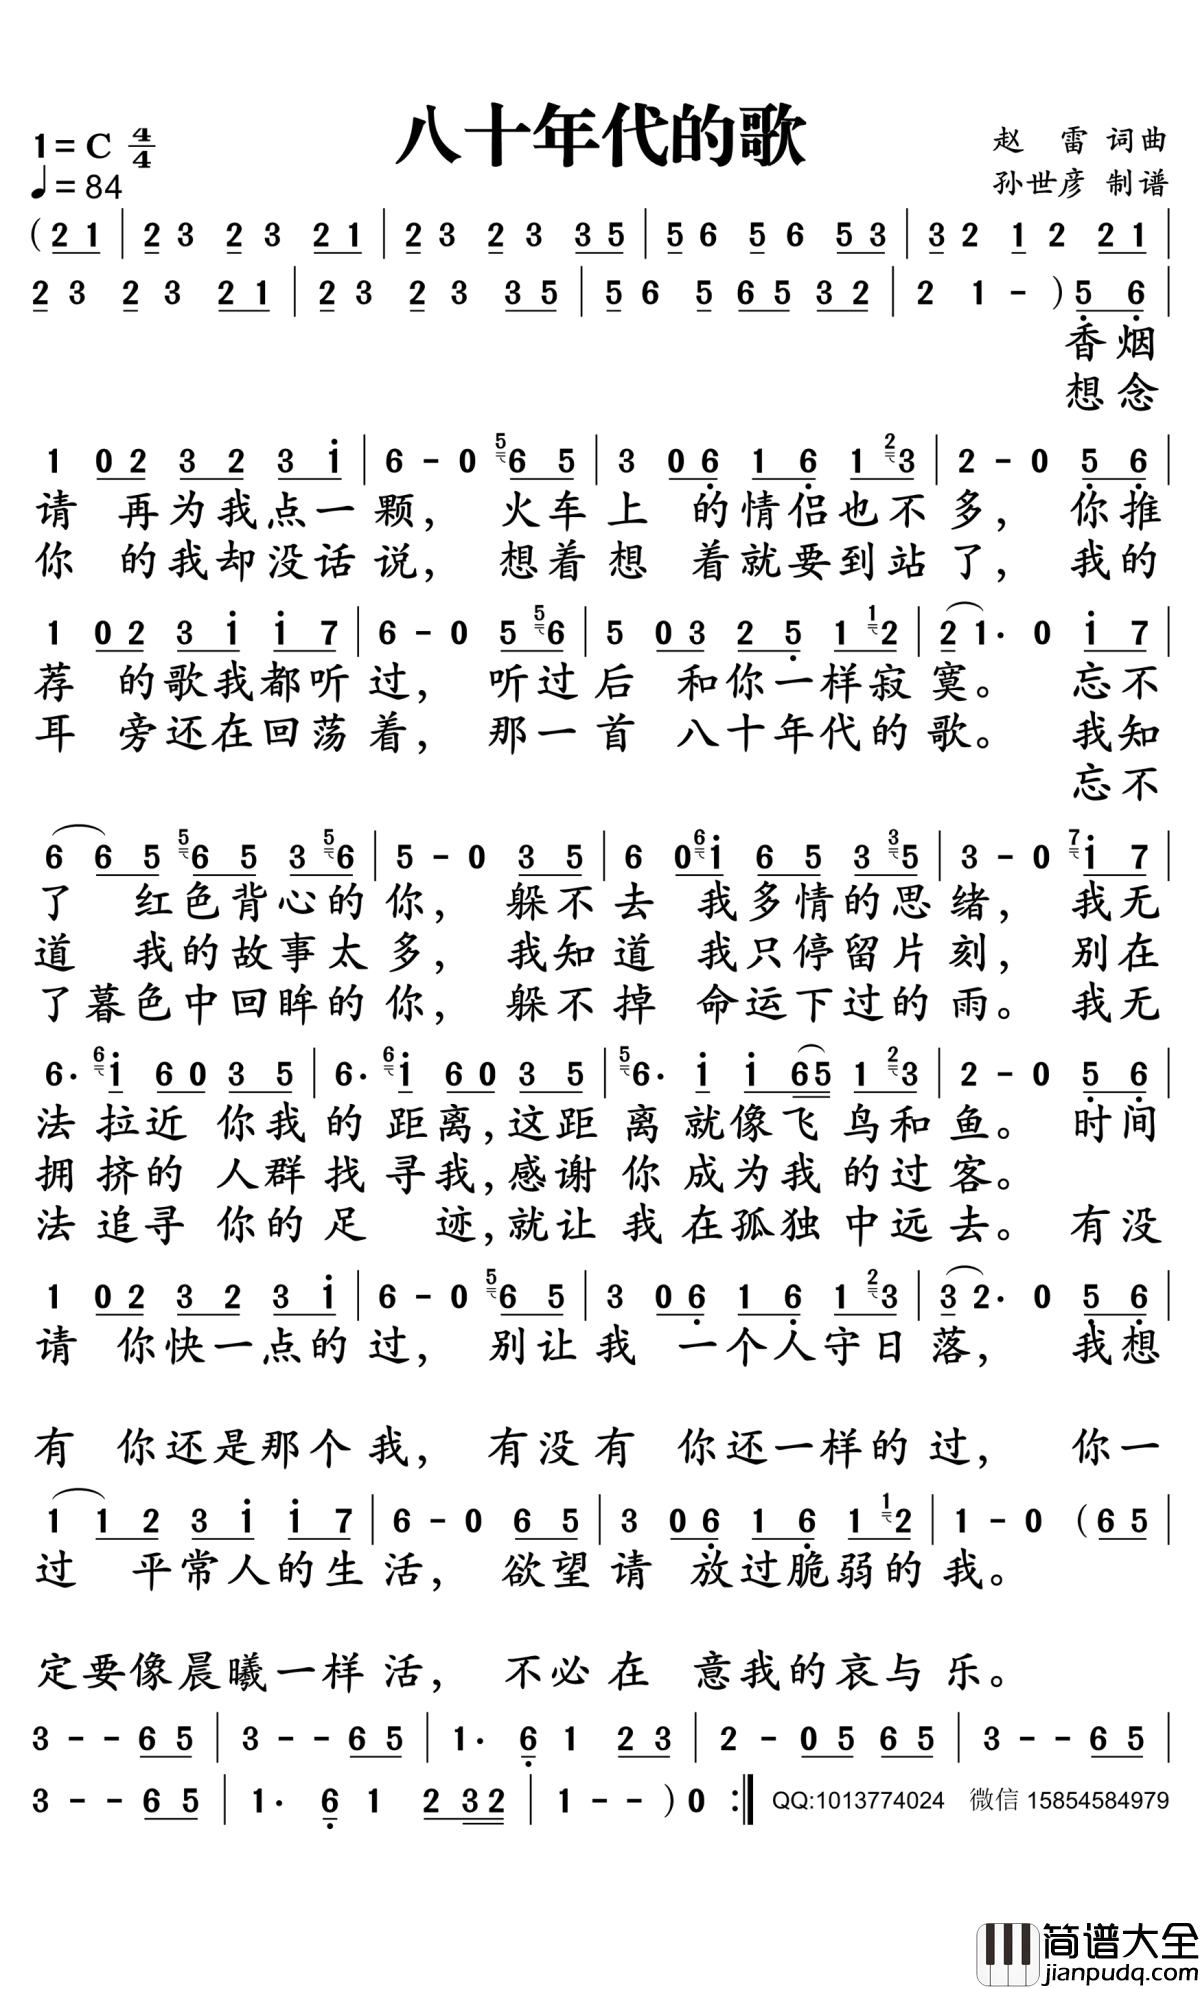 八十年代的歌
1=C 4/4
♩=84
赵 雷 词曲
孙世彦 制谱
(2 1 | 2 3 2 3 2 1 | 2 3 2 3 3 5 | 5 6 5 6 5 3 | 3 2 1 2 2 1 |
2 3 2 3 2 1 | 2 3 2 3 3 5 | 5 6 5 6 5 3 2 | 2 1 - ) 5̣ 6̣ |
香烟
想念
1 0 2 3 2 3 i | 6 - 0 5 6 5 | 3 0 6̣ 1 6̣ 1 2 3 | 2 - 0 5̣ 6̣ |
请 再为我点一颗, 火车上 的情侣也不多, 你推
你 的我却没话说, 想着想 着就要到站了, 我的
1 0 2 3 i i 7 | 6 - 0 5 5 6 | 5 0 3 2 5̣ 1 1 2 | 2 1· 0 i 7 |
荐 的歌我都听过, 听过后 和你一样寂寞。 忘不
耳 旁还在回荡着, 那一首 八十年代的歌。 我知
忘不
6 6 5 5 6 5 3 5 6 | 5 - 0 3 5 | 6 0 6 i 6 5 3 3 5 | 3 - 0 7 i 7 |
了 红色背心的你, 躲不去 我多情的思绪, 我无
道 我的故事太多, 我知道 我只停留片刻, 别在
了暮色中回眸的你, 躲不掉 命运下过的雨。 我无
6· 6 i 6 0 3 5 | 6· 6 i 6 0 3 5 | 5 6· i i 6 5 1 2 3 | 2 - 0 5̣ 6̣ |
法 拉近 你我的距离,这距离就像飞鸟和鱼。 时间
拥 挤的 人群找寻我,感谢你成为我的过客。
法 追寻 你的足 迹,就让我在孤独中远去。 有没
1 0 2 3 2 3 i | 6 - 0 5 6 5 | 3 0 6̣ 1 6̣ 1 2 3 | 3 2· 0 5̣ 6̣ |
请 你快一点的过, 别让我 一个人守日落, 我想
有 你还是那个我, 有没有 你还一样的过, 你一
1 1 2 3 i i 7 | 6 - 0 6 5 | 3 0 6̣ 1 6̣ 1 1 2 | 1 - 0 (6 5 |
过 平常人的生活, 欲望请 放过脆弱的我。
定要像晨曦一样活, 不必在 意我的哀与乐。
3 - - 6 5 | 3 - - 6 5 | 1· 6̣ 1 2 3 | 2 - 0 5 6 5 | 3 - - 6 5 |
3 - - 6 5 | 1· 6̣ 1 2 3 2 | 1 - - ) 0 :‖ QQ:1013774024 微信 15854584979
简谱大全
jianpudq.com